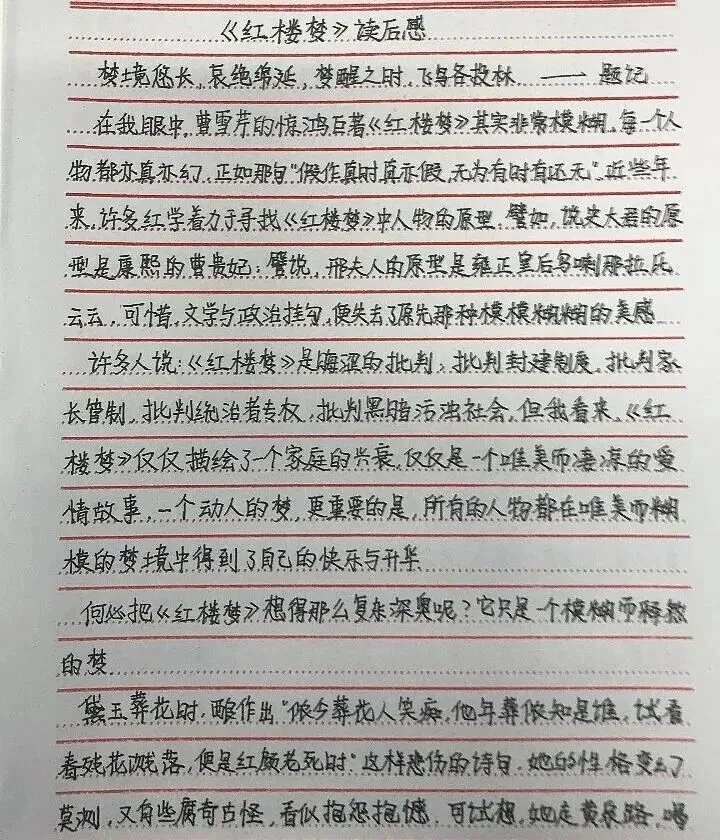 《红楼梦》读后感
梦境悠长，哀绝绵延，梦醒之时，飞鸟各投林 —— 题记
在我眼中，曹雪芹的惊鸿巨著《红楼梦》其实非常模糊，每一个人
物都亦真亦幻，正如那句“假作真时真亦假，无为有时有还无”。近些年
来，许多红学着力于寻找《红楼梦》中人物的原型，譬如，说史太君的原
型是康熙的曹贵妃；譬说，邢夫人的原型是雍正皇后乌喇那拉氏
云云，可惜，文学与政治挂勾，便失去了原先那种模模糊糊的美感
许多人说：《红楼梦》是晦涩的批判，批判封建制度，批判家
长管制，批判统治者专权，批判黑暗污浊社会，但我看来，《红
楼梦》仅仅描绘了一个家庭的兴衰，仅仅是一个唯美而凄凉的爱
情故事，一个动人的梦，更重要的是，所有的人物都在唯美而糊
模的梦境中得到了自己的快乐与升华
何必把《红楼梦》想得那么复杂深奥呢？它只是一个模糊而
的梦．
黛玉葬花时，虽作出“侬今葬花人笑痴，他年葬侬知是谁，试看
春残花渐落，便是红颜老死时”这样悲伤的诗句，她的性格变幻
莫测，又有些腐奇古怪，看似抱怨抱憾，可试想，她走黄泉路，喝